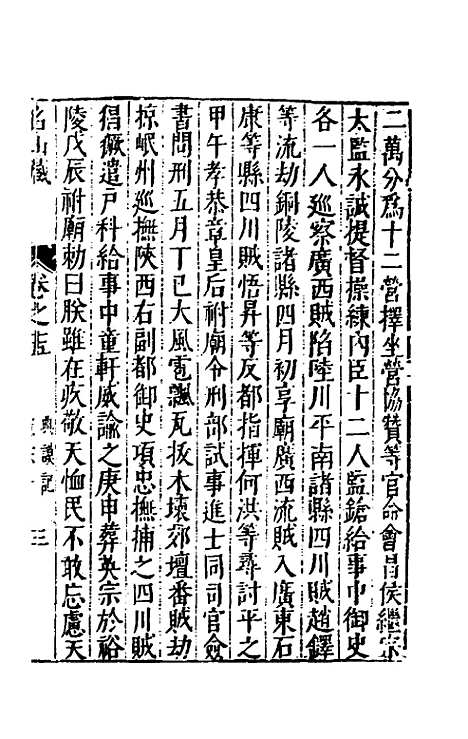 二萬分爲十二營擇坐營協贊等官命會昌侯繼宗
太監永誠提督操練內臣十二人監鎗給事中御史
各一人巡察廣西賊陷陸川平南諸縣四川賊趙鐸
等流劫銅陵諸縣四月初享廟廣西流賊入廣東石
康等縣四川賊悟昇等反都指揮何洪等尋討平之
甲午孝恭章皇后祔廟令刑部試事進士同司官僉
書問刑五月丁巳大風雹飄瓦拔木壞郊壇番賊劫
掠岷州巡撫陝西右副都御史項忠撫捕之四川賊
猖獗遣戶科給事中童軒威諭之庚申葬英宗於裕
陵戊辰祔廟勑曰朕雖在疚敬天恤民不敢忘慮天
名山藏
卷之
典謨記
三